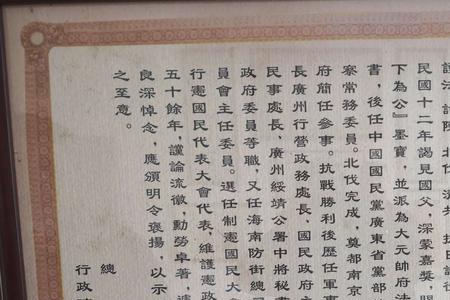 法、討陳、北伐、清
民國十二年謁見國父，深蒙嘉獎，
下為公』墨寶，並派為大元帥府法
書，後任中國國民黨廣東省黨部
察常務委員。北伐完成，奠都南京
府簡任參事。抗戰勝利後歷任軍事
長廣州行營政務處長、國民政府主
民事處長，廣州綏靖公署中將秘書
政府委員等職，又任海南防衛總
員會主任委員。選任制憲國民大
行憲國民代表大會代表，維護憲政
五十餘年，讜論流徽，勳勞卓著，
良深悼念，應頒明令褒揚，以示
之至意。
總
行政